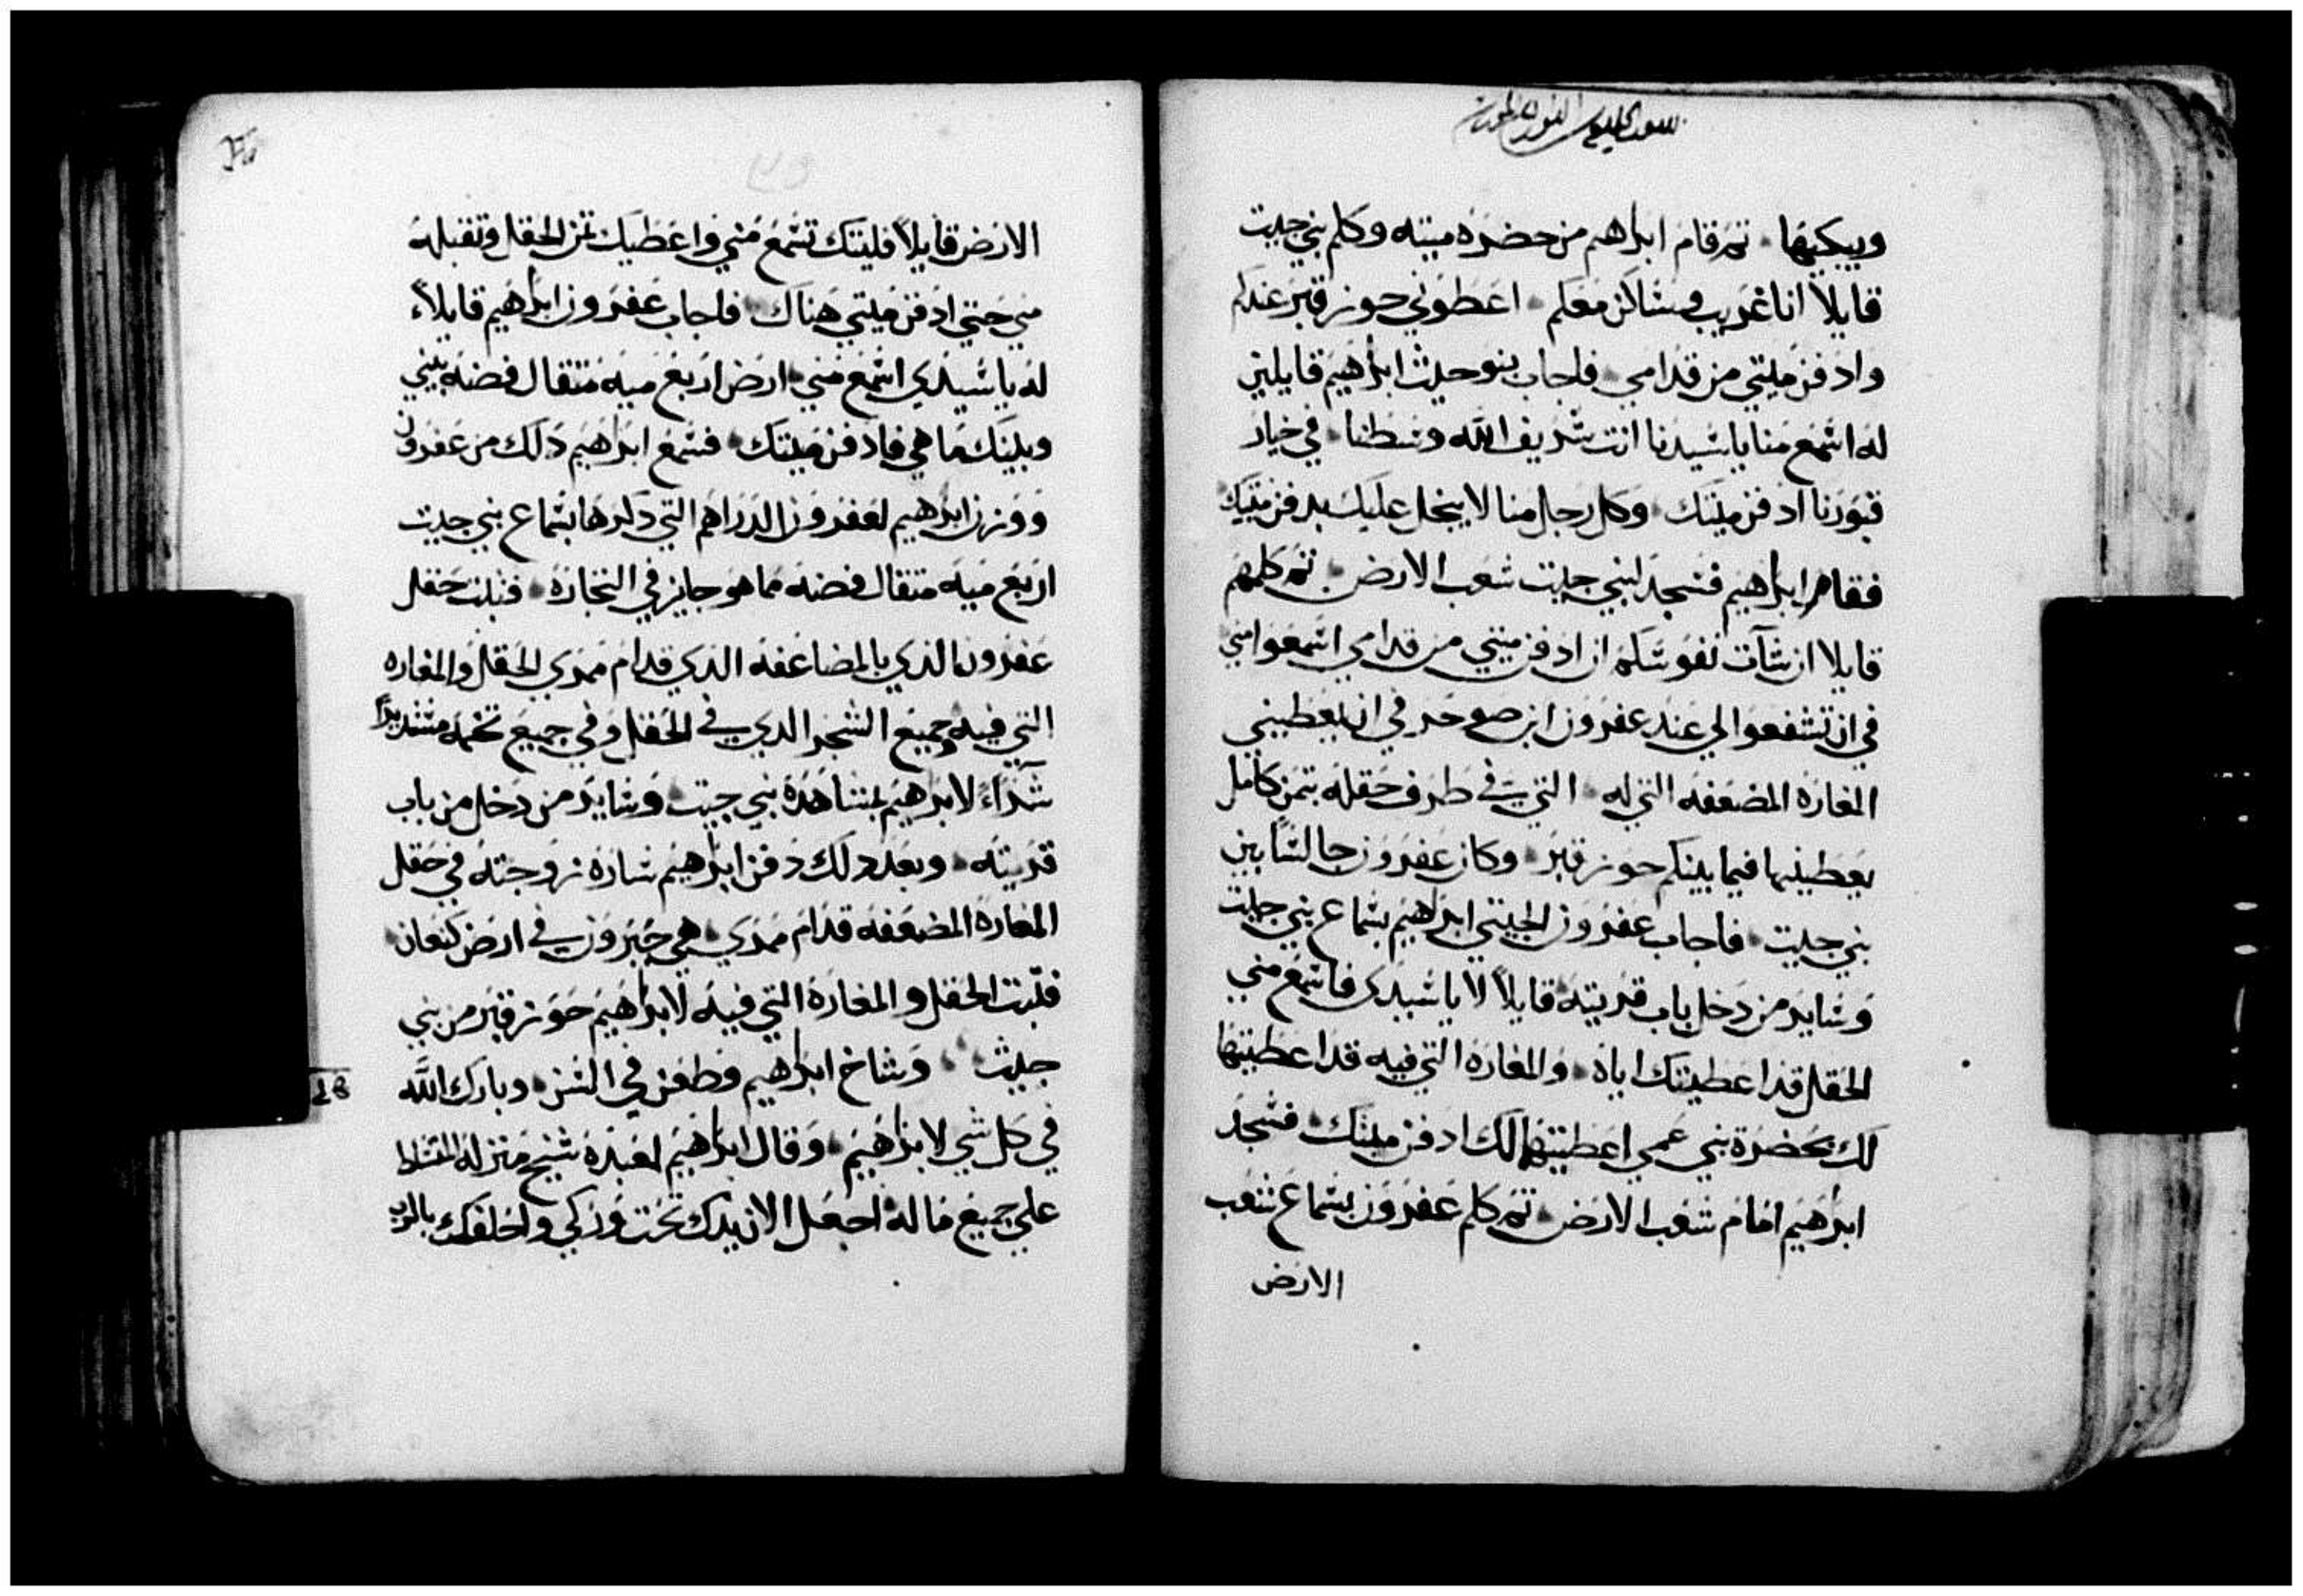 ويبكيها ثم قام ابراهيم من حضره ميته وكلم بني حيت
قايلاً انا غريب وساكن معكم اعطوني حوز قبر عندكم
وادفن ميتي من قدامي فاجاب بنو حيث ابراهيم قايلين
له اسمع منا يا سيدنا انت شريف الله وسطنا في خيار
قبورنا ادفن ميتك وكل رجل منا لا يبخل عليك بدفن ميتك
فقام ابراهيم فسجد لبني حيت شعب الارض ثم كلمهم
قايلا ان شآت نفوسكم ان ادفن ميتي من قدامي اسمعوا مني
في ان تشفعوا لي عند عفرون ابن صوحر في ان يعطيني
المغاره المضعفه التي له التي في طرف حقله بثمن كامل
يعطينيها فيما بينكم حوز قبر وكان عفرون جالسًا بين
بني حيت فاجاب عفرون الحيتي ابراهيم بسماع بني حيت
وساير من دخل باب قريته قايلاً لا يا سيدي فاسمع مني
الحقل قد اعطيتك اياه والمغاره التي فيه قد اعطيتها
لك بحضرة بني عمي اعطيتها لك ادفن ميتك فسجد
ابرهيم امام شعب الارض ثم كلم عفرون بسماع شعب
الارض
الارض قايلاً فليتك تسمع مني واعطيك ثمن الحقل وتقبله
مني حتي ادفن ميتي هناك فاجاب عفرون ابراهيم قايلاً
له يا سيدي اسمع مني ارض اربع ميه مثقال فضه بيني
وبينك ما هي فادفن ميتك فسمع ابراهيم ذلك من عفرون
ووزن ابراهيم لعفرون الدراهم التي ذكرها بسماع بني حيت
اربع ميه مثقال فضه مما هو جايز في التجاره فثبت حقل
عفرون الذي بالمضاعفه الذي قدام ممري الحقل والمغاره
التي فيه وجميع الشجر الذي في الحقل وفي جميع تخمه مستديرًا
شراءً لابراهيم بمشاهدة بني حيت وساير من دخل من باب
قريته وبعد ذلك دفن ابراهيم ساره زوجته في حقل
المغاره المضعفه قدام ممري هي حبرون في ارض كنعان
فثبت الحقل والمغاره التي فيه لابراهيم حوز قبر من بني
حيث وشاخ ابراهيم وطعن في السن وبارك الله
في كل شي لابراهيم وقال ابراهيم لعبده شيخ منزله المتسلط
علي جميع ما له اجعل الان يدك تحت وركي واحلفك بالرب